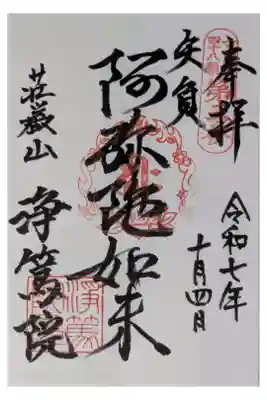 奉拝
令和七年
十月四日
矢負
阿弥陀如来
荘嚴山
浄篤院